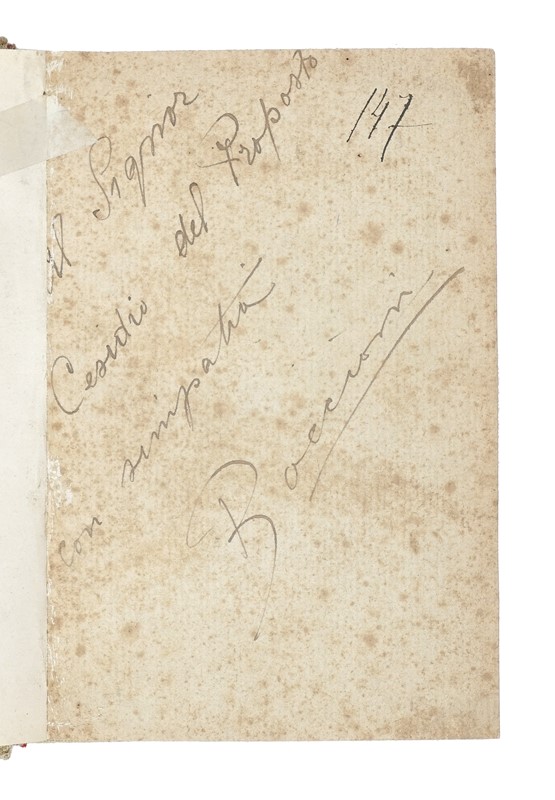 147
al Signor
Cesidio del Proposto
con simpatia
Boccioni